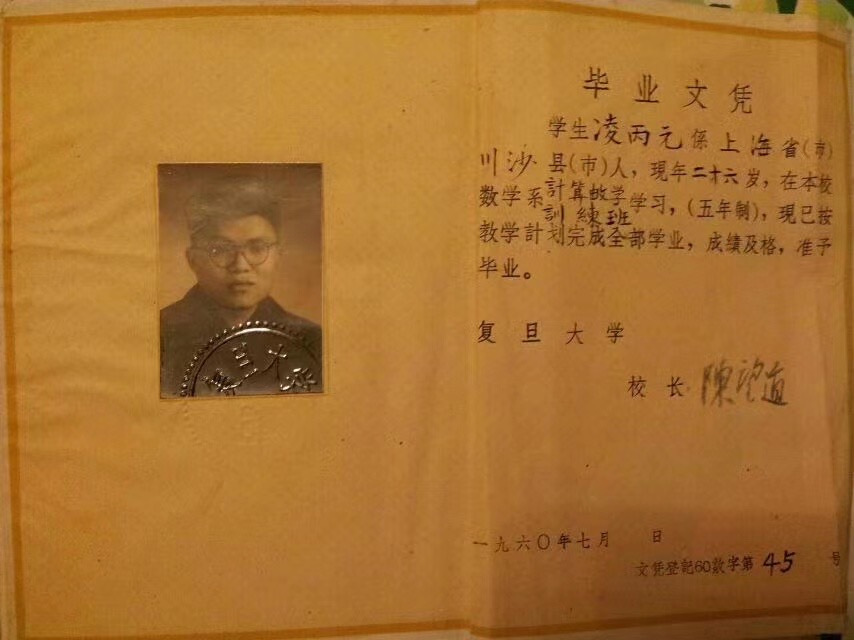 毕业文凭
学生凌丙元係上海省(市)
川沙县(市)人，現年二十六岁，在本校
数学系計算数学訓練班学习，(五年制)，現已按
教学計划完成全部学业，成績及格，准予
毕业。
复旦大学
校长 陳望道
一九六〇年七月 日
文凭登記60数字第45号
旦大